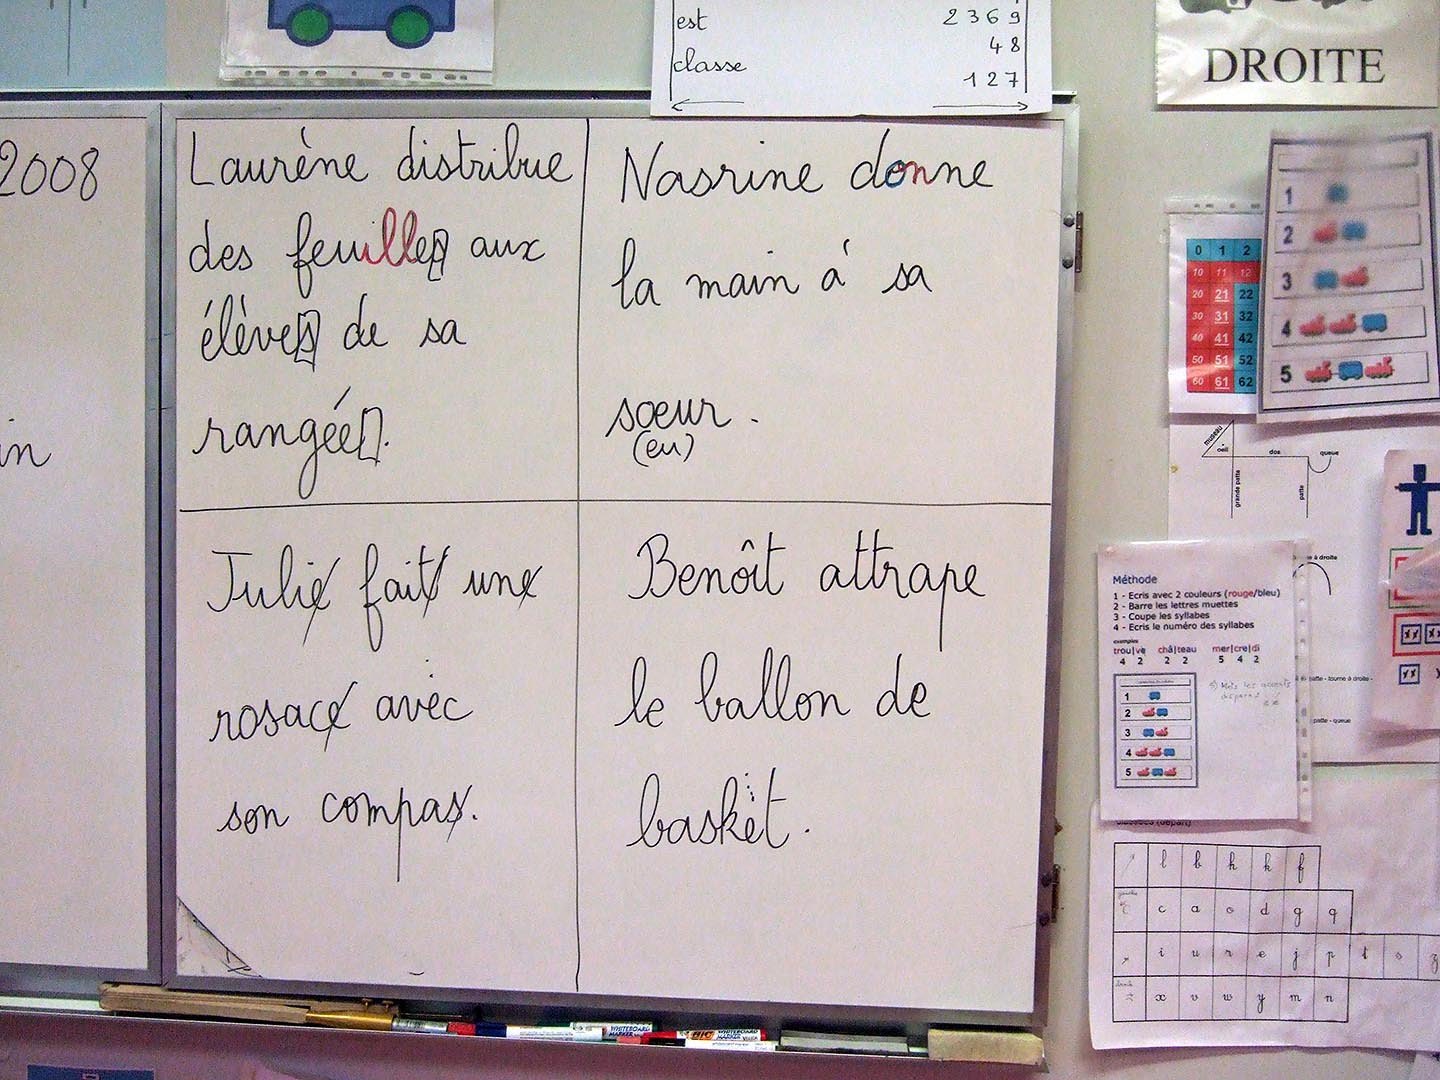 est 2369
48
classe 127
DROITE
2008
in
Laurène distribue
des feuilles aux
élèves de sa
rangée.
Nasrine donne
la main à sa
sœur.
(eu)
Julie fait une
rosace avec
son compas.
Benoît attrape
le ballon de
basket.
0 1 2
10 11 12
20 21 22
30 31 32
40 41 42
50 51 52
60 61 62
1
2
3
4
5
museau
oeil dos queue
grande patte
patte
Méthode
1 - Ecris avec 2 couleurs (rouge/bleu)
2 - Barre les lettres muettes
3 - Coupe les syllabes
4 - Ecris le numéro des syllabes
exemples
trou|ve châ|teau mer|cre|di
4 2 2 2 5 4 2
1
2
3
4
5
5) Mets les accents
disparus
à droite
patte - tourne à droite -
patte - queue
l b h k f
c a o d g q
i u r e j p t s z
x v w y m n
WHITEBOARD MARKER
BIC WHITEBOARD MARKER